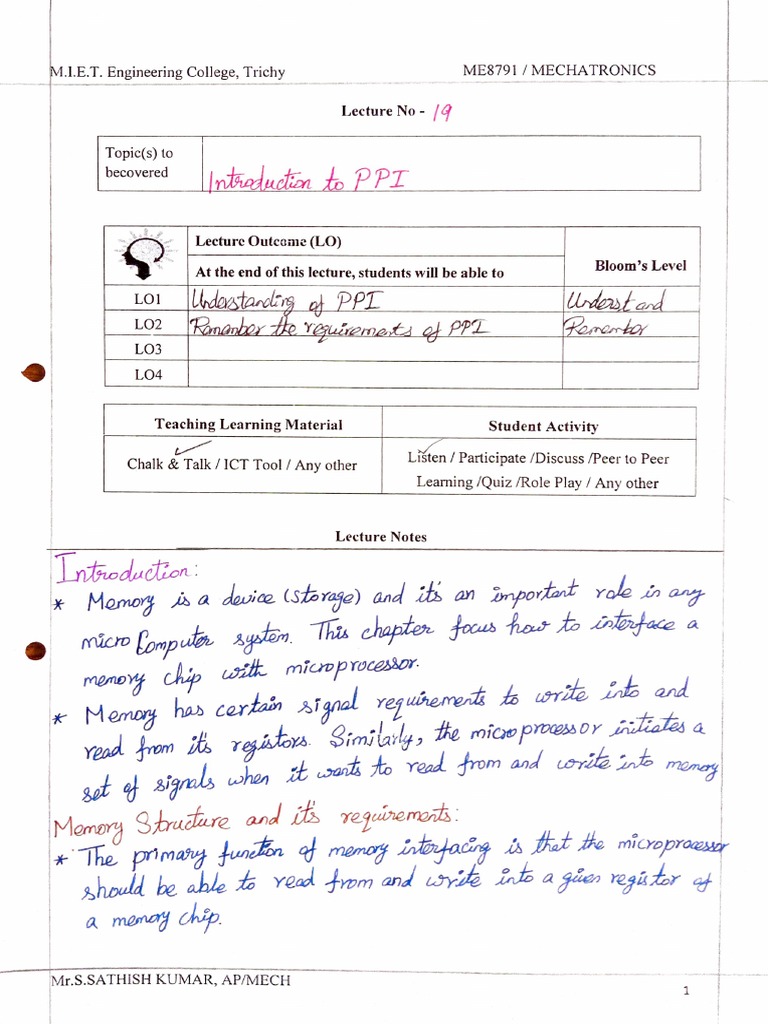 M.I.E.T. Engineering College, Trichy
ME8791 / MECHATRONICS
Lecture No - 19
Topic(s) to
becovered
Introduction to PPI
Lecture Outcome (LO)
Bloom's Level
At the end of this lecture, students will be able to
LO1 Understanding of PPI Understand
LO2 Remamber the requirements of PPI Remambor
LO3
LO4
Teaching Learning Material
Student Activity
Chalk & Talk / ICT Tool / Any other
Listen / Participate /Discuss /Peer to Peer
Learning /Quiz /Role Play / Any other
Lecture Notes
Introduction:
* Memory is a device (storage) and it's an important role in any
micro Computer system. This chapter focus how to interface a
memory chip with microprocessor.
* Memory has certain signal requirements to write into and
read from it's registors. Similarly, the microprocessor initiates a
set of signals when it wants to read from and write into memory
Memory Structure and it's requirements:
* The primary function of memory interfacing is that the microprocessor
should be able to read from and write into a given registor of
a memory chip.
Mr.S.SATHISH KUMAR, AP/MECH
1